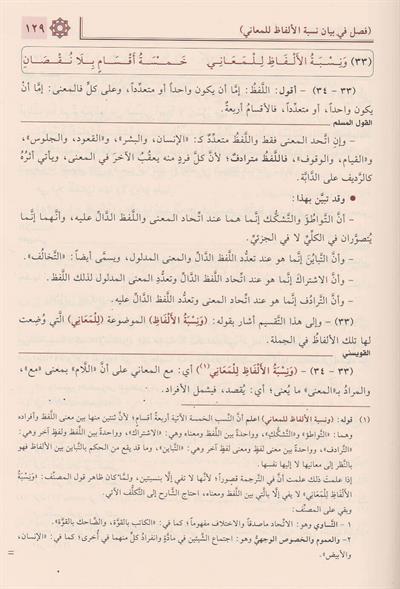 (فصل في بيان نسبة الألفاظ للمعاني)
١٢٩
(٣٣) وَنِسْبَةُ الأَلْفَاظِ لِلْمَعَانِي خَمْسَةُ أَقْسَامٍ بِلَا نُقْصَانِ
(٣٣ - ٣٤) - أقول: اللَّفظُ: إمَّا أن يكون واحداً أو متعدِّداً، وعلى كلٍّ فالمعنى: إمَّا أنْ
يكون واحداً، أو متعدِّداً، فالأقسامُ أربعةٌ.
القول المسلم
- وإن اتَّحد المعنى فقط واللَّفظُ متعدِّدٌ كـ: «الإنسان، والبشر»، و«القعود، والجلوس»،
و«القيام، والوقوف»، فاللَّفظُ مترادفٌ؛ لأنَّ كلَّ فردٍ منه يعقُبُ الآخرَ في المعنى، ويأتي أثرُهُ
كالرَّديف على الدَّابَّة.
• وقد تبيَّن بهذا:
- أنَّ التَّواطُؤَ والتَّشكُّكَ إنَّما هما عند اتِّحاد المعنى واللَّفظ الدَّالِّ عليه، وأنَّهما إنَّما
يُتصوَّران في الكلِّيِّ لا في الجزئيِّ.
- وأنَّ التَّبايُنَ إنَّما هو عند تعدُّدِ اللَّفظ الدَّالِّ والمعنى المدلول، ويسمَّى أيضاً: «التَّخالُف».
- وأنَّ الاشتراكَ إنَّما هو عند اتِّحاد اللَّفظ الدَّالِّ وتعدُّدِ المعنى المدلول لذلك اللَّفظ.
- وأنَّ التَّرادُف إنَّما هو عند اتِّحاد المعنى وتعدُّد اللَّفظ الدَّالِّ عليه.
(٣٣) - وإلى هذا التَّقسيم أشار بقوله: (وَنِسْبَةُ الأَلْفَاظِ) الموضوعة (لِلْمَعَانِي) الَّتي وُضِعت
لها تلك الألفاظ في الجملة.
القويسني
(٣٣ - ٣٤) - (وَنِسْبَةُ الأَلْفَاظِ لِلْمَعَانِي)(١) أي: مع المعاني على أنَّ «اللَّام» بمعنى «مع»،
والمرادُ بـ«المعنى» ما يُعنى؛ أي: يُقصد، فيشمل الأفراد.
(١) قوله: (ونسبة الألفاظ للمعاني) اعلم أنَّ النِّسب الخمسة الآتية أربعةُ أقسام؛ لأنَّ ثنتين منها بين معنى اللَّفظ وأفراده
وهما: «التَّواطؤ» و«التَّشكُّك»، وواحدةً بين اللَّفظ ومعناه وهي: «الاشتراك»، وواحدةً بين اللَّفظ ولفظ آخر وهي:
«التَّرادف»، وواحدةً بين معنى لفظٍ ومعنى لفظٍ آخر وهي: «التَّباين»، وما قد يقع من الحكم بالتَّباين بين الألفاظ فهو
بالنَّظر إلى معانيها لا إليها نفسها.
إذا علمتَ ذلك علمت أنَّ في التَّرجمة قصوراً؛ لأنَّها لا تفي إلَّا بنسبتين، ولمَّا كان ظاهر قول المصنِّف: «وَنِسْبَةُ
الأَلْفَاظِ لِلْمَعَانِي» لا يفي إلَّا بالَّتي بين اللَّفظ ومعناه، احتاج الشَّارح إلى التَّكلُّف الآتي.
وبقي على المصنِّف:
١ - التَّساوي وهو: الاتِّحاد ماصدقاً والاختلاف مفهوماً؛ كما في: «الكاتب بالقوَّة، والضَّاحك بالقوَّة».
٢ - والعموم والخصوص الوجهيُّ وهو: اجتماع الشَّيئين في مادَّةٍ وانفرادُ كلٍّ منهما في أُخرى؛ كما في: «الإنسان،
والأبيض».
=